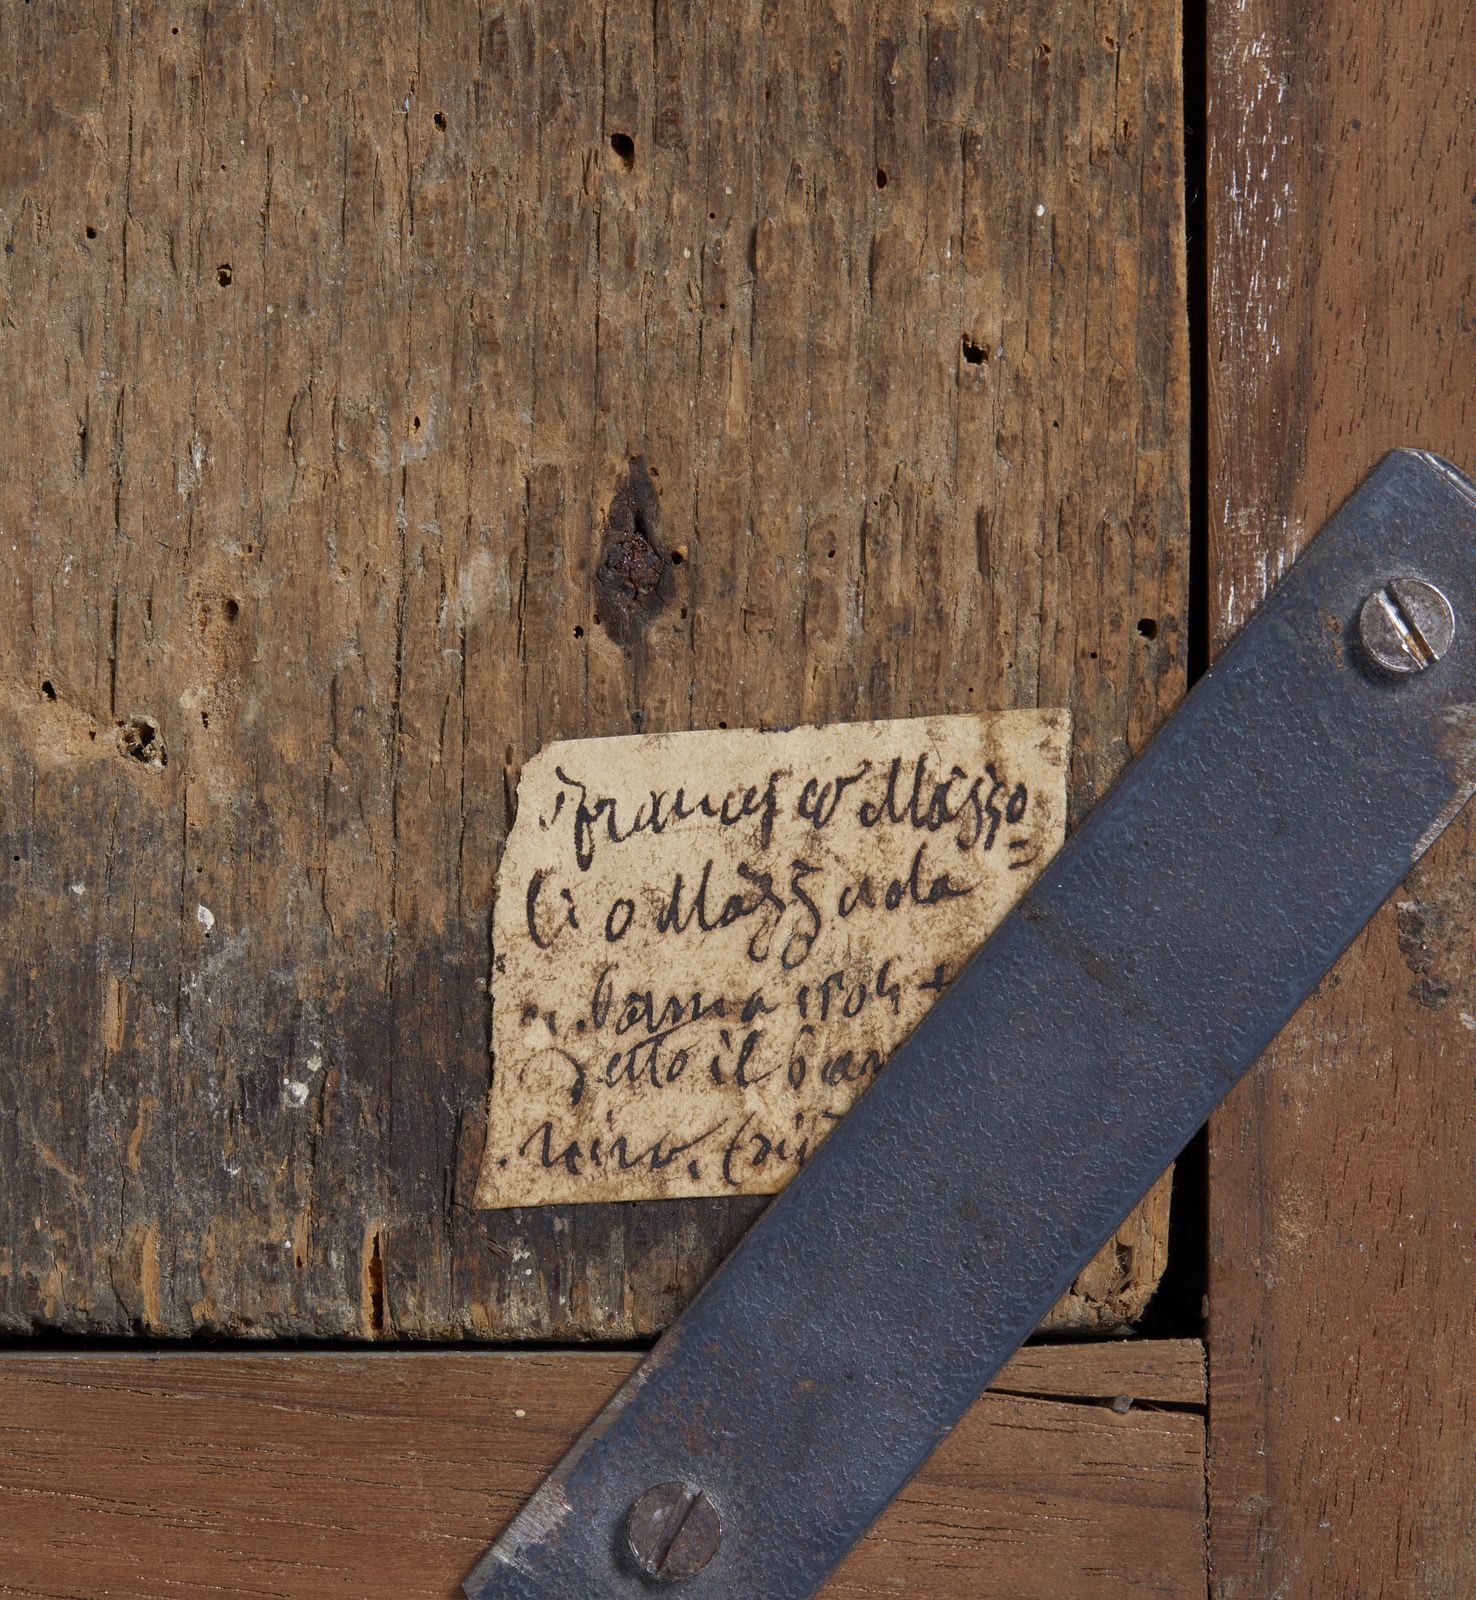 Francesco Mazzo=
li o Mazzuola
n. Parma 1504 +
Detto il Par
. nino. (